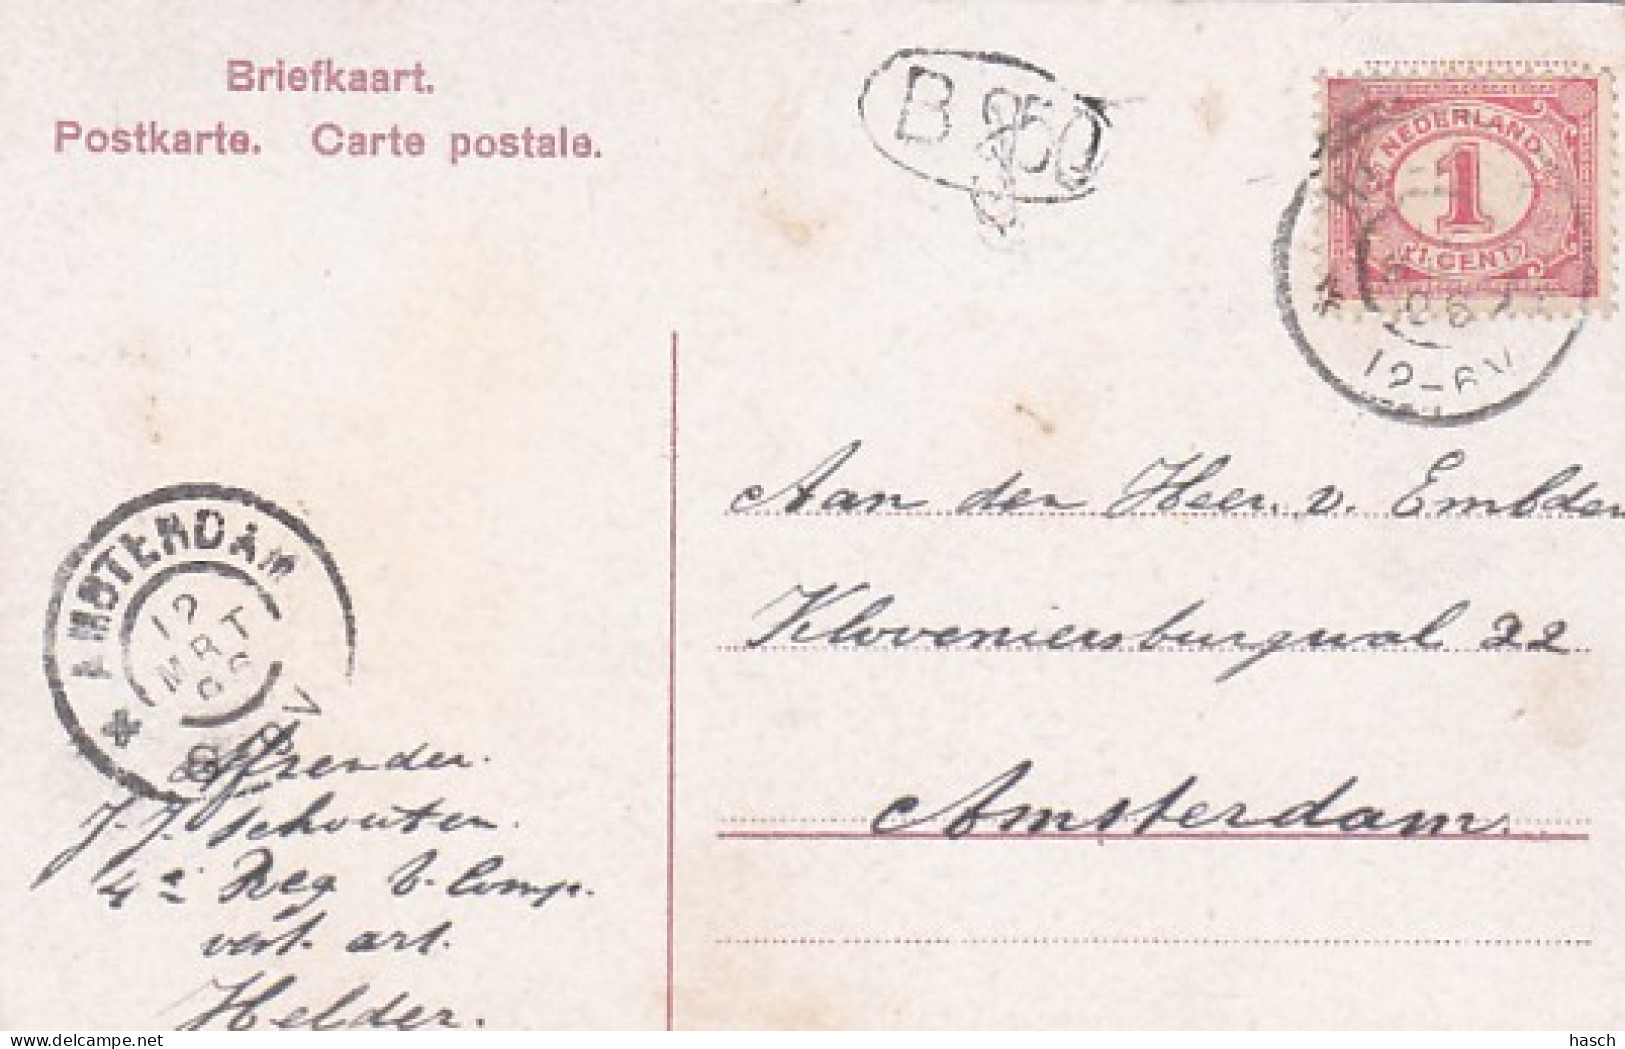 Briefkaart.
Postkarte. Carte postale.
B 250
NEDERLAND
1
1 CENT
06
12-6V
Aan den Heer v. Embden
Kloveniersburgwal 22
Amsterdam
AMSTERDAM
12
MRT
06
V
Afzender.
J.J. Schouten.
4e Reg b. Comp.
vest. art.
Helder.
hasch